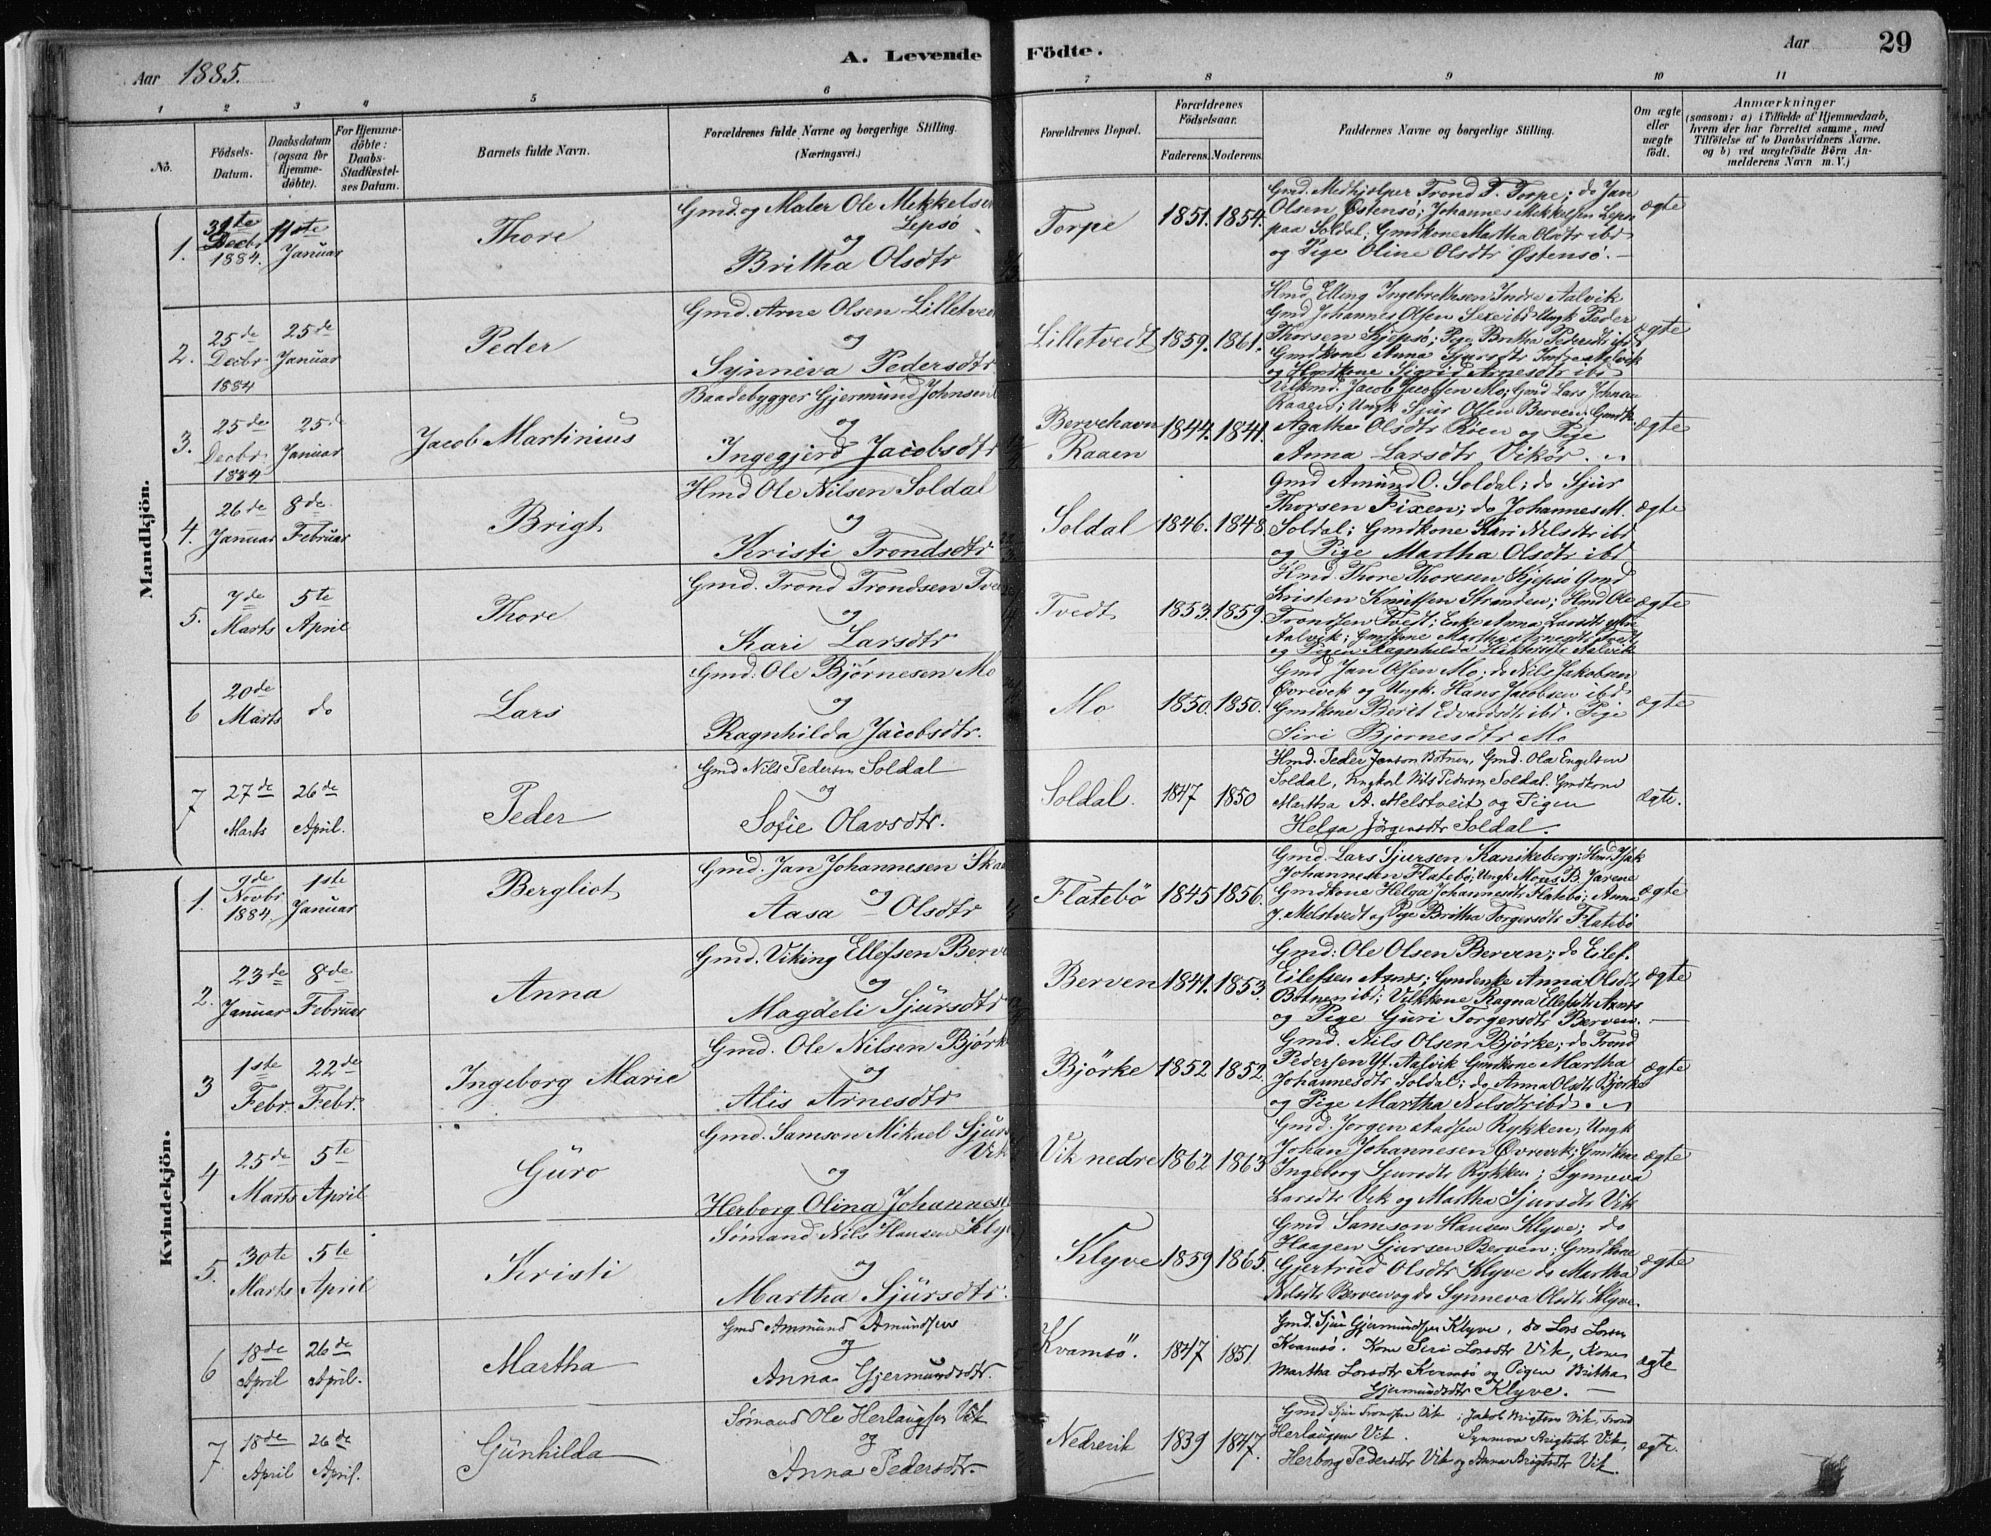 A. Levende Födte.
Aar 1885.
Aar 29
1 2 3 4 5 6 7 8 9 10 11
No.
Födsels-Datum.
Daabsdatum (ogsaa for Hjemmedöbte).
For Hjemmedöbte: Daabs-Stadfæstelses Datum.
Barnets fulde Navn.
Forældrenes fulde Navne og borgerlige Stilling. (Næringsvei.)
Forældrenes Bopæl.
Forældrenes Födselsaar.
Faderens. Moderens.
Faddernes Navne og borgerlige Stilling.
Om ægte eller uægte födt.
Anmærkninger (saasom: a) i Tilfælde af Hjemmedaab, hvem der har forrettet samme, med Tilföielse af to Daabsvidners Navne, og b) ved uægtefödte Børn Anmelderens Navn m. V.)
Mandkjön.
1. Decbr 1884. 11te Januar
Thore
Gmd. og Maler Ole Mikkelsen Lepsö
og
Britha Olsdtr
Torpe 1851. 1854.
Gmd. Medhjælper Trond T. Torpe; do Jan
Olsen Østensö; Johannes Mikkelsen Lepsö
paa Soldal; Gmdkone Martha Olsdtr ibd
og Pige Oline Olsdtr Østensö.
ægte
2. 25de Decbr 1884 25de Januar
Peder
Gmd. Arne Olsen Lilletvedt
og
Synneva Pedersdtr
Lilletvedt 1859. 1861.
Hmd. Elling Ingebrethsen Indre Aalvik
Gmd Johannes Olsen Sexe ibd Ungk Peder
Thorsen Kjepsö; Pige Britha Pedersdtr ibd
Gmdkone Anna Sjursdtr Indre Aalvik
og Hmdkone Sigrid Arnesdtr ibd
ægte
3. 25de Decbr 1884 25de Januar
Jacob Martinius
Baadebygger Gjermund Johnsen
og
Ingegjerd Jacobsdtr
Bervehavn Raaen 1844. 1841.
Jacob Jacobsen Mo; Gmd Lars Johnsen
Raaen; Ungk Sjur Olsen Berven; Gmdk.
Agatha Olsdtr Röen og Pige
Anna Larsdtr Vikör.
ægte
4. 26de Januar 8de Februar
Brigt
Hmd Ole Nilsen Soldal
og
Kristi Trondsdtr
Soldal 1846. 1848
Gmd Amund O. Soldal; do Sjur
Thorsen Fixen; do Johannes M.
Soldal; Gmdkone Kari Nilsdtr ibd
og Pige Martha Olsdtr ibd
ægte
5. 7de Marts 5te April
Thore
Gmd. Trond Trondsen Tve
og
Kari Larsdtr
Tvedt 1853. 1859.
Hmd. Thore Thoresen Kjepsö Gmd
Kristen Knutsen Stranden; Hmd Ole
Trondsen Tvedt; Enke Anna Larsdtr
Aalvik; Gmdkone Martha Arnesdtr Tvedt
og Pigen Ragnhilda Aalvik
ægte
6 20de Marts do
Lars
Gmd. Ole Bjørnesen Mo
og
Ragnhilda Jacobsdtr.
Mo 1850. 1850.
Gmd Jan Olsen Mo; do Nils Jakobsen
Øvrevik og Ungk. Hans Jacobsen ibd
Gmdkone Berit Edvardsdtr ibd. Pige
Siri Bjornesdtr Mo
ægte
7 27de Marts 26de April.
Peder
Gmd Nils Pedersen Soldal
og
Sofie Olavsdtr.
Soldal. 1847 1850
Hmd. Peder Janson Botnen, Gmd. Ola Engelsen
Soldal, Nils Pedersen Soldal. Gmdkone
Martha A. Melstveit og Pigen
Helga Jörgensdtr Soldal.
ægte.
Kvindekjön.
1. 9de Novbr 1884 1ste Januar
Bergliot
Gmd. Jan Johannesen Skaa
og
Aasa Olsdtr
Flatebö 1845 1856.
Gmd. Lars Sjursen Kanikeberg; Hmd. Isak
Johannesen Flatebö; Ungk Mons B. Jarene
Gmdkone Helga Johannesdtr Flatebö; Anna
J. Melstvedt og Pige Britha Torgersdtr Flatebö
ægte
2. 23de Januar 8de Februar
Anna
Gmd. Viking Ellefsen Berve
og
Magdeli Sjursdtr
Berven 1841. 1853.
Gmd: Ole Olsen Berven; do Eilef
Eilefsen Axnes; Gmdenke Anna Olsdtr
Botnen ibd; Vilkkone Ragna Ellefsdtr Axnes
og Pige Guri Torgersdtr Berven.
ægte
3 1ste Febr. 22de Febr.
Ingeborg Marie
Gmd. Ole Nilsen Bjørk
og
Alis Arnesdtr
Björke 1852 1852.
Gmd. Nils Olsen Bjørke; do Trond
Pedersen Yt. Aalvik Gmdkone Martha
Johannesdtr Soldal; do Anna Olsdtr Bjørke
og Pige Martha Nilsdtr ibd.
ægte
4 25de Marts 5te April
Guro
Gmd. Samson Mikael Sjurs Vik
og
Herborg Olina Johannes
Vik nedre 1862 1863
Gmd. Jorgen Rykken; Ungk
Johan Johannesen Øvrevik; Gmdkone
Ingeborg Sjursdtr Rykken; Synneva
Larsdtr Vik og Martha Sjursdtr Vik
ægte
5. 30te Marts 5te April
Kristi
Sømand Nils Hansen Klyve
og
Martha Sjursdtr.
Klyve 1859 1865.
Gmd Samson Hansen Klyve; do
Haagen Sjursen Berven; Gmdkone
Gjertrud Olsdtr Klyve do Martha
Nilsdtr Berven og do Synneva Olsdtr Klyve.
ægte
6 18de April 26de April.
Martha
Gmd Ammund Amundsen
og
Anna Gjermundsdtr.
Kvamsö. 1847 1851.
Gmd. Sjur Gjermundsen Klyve, do Lars Larsen
Kvamsö. Kone Siri Larsdtr Vik, Kone
Martha Larsdtr Kvamsö og Pigen Britha
Gjermundsdtr Klyve.
ægte
7. 18de April 26de April.
Gunhilda
Sømand Ole Herlaugsen Vik
og
Anna Pedersdtr.
Nedrevik 1839 1847.
Gmd Sjur Trondsen Vik; Jakob Brigtsen Vik, Trond
Herlaugsen Vik. Synneva Brigtsdtr Vik,
Herborg Pedersdtr Vik og Anna Brigtsdtr Vik.
ægte.